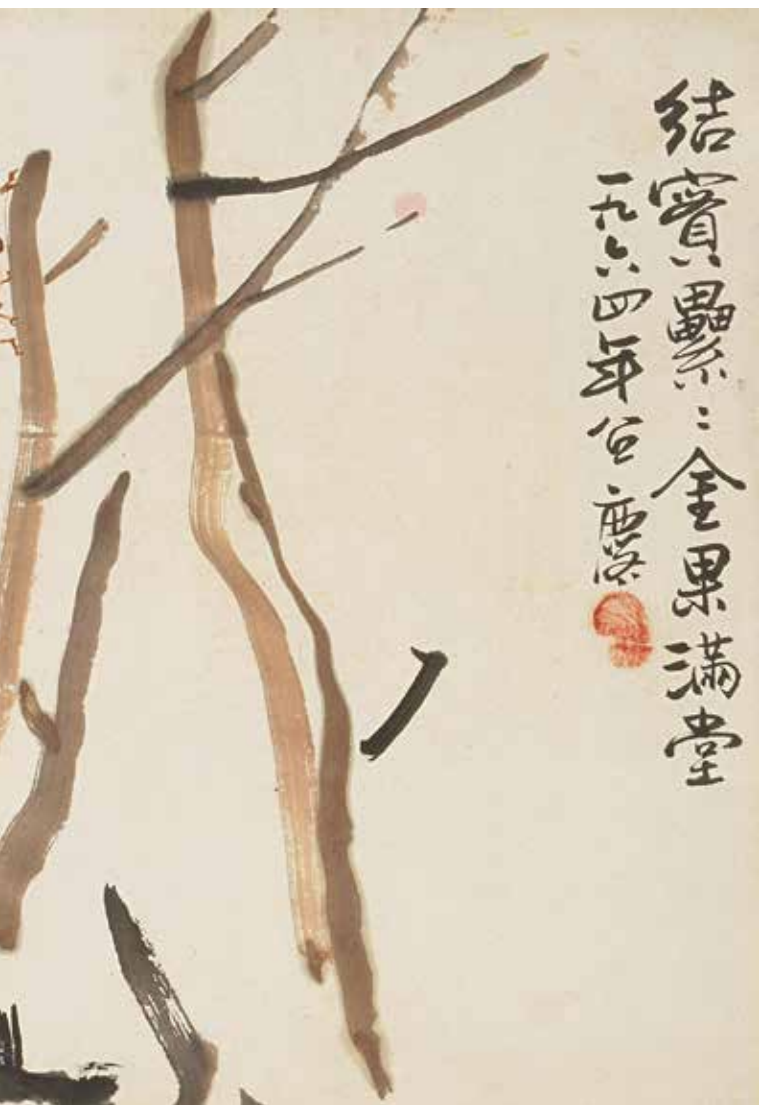 結實纍〻金果滿堂
一九六四年